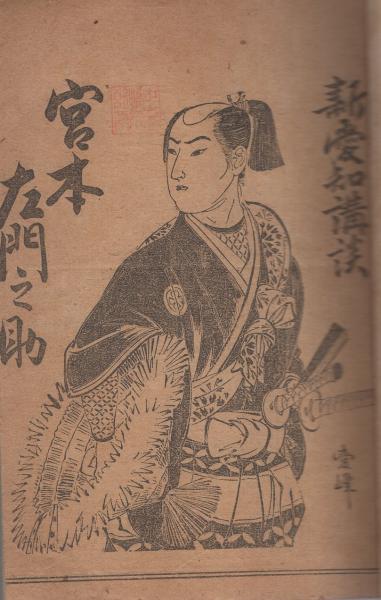 新愛知講談
宮本
左門之助